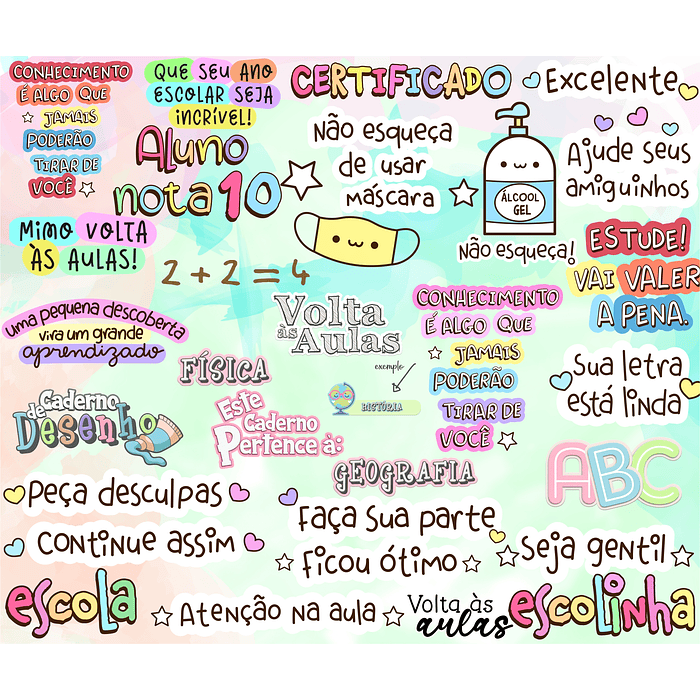 CONHECIMENTO
É ALGO QUE
JAMAIS
PODERÃO
TIRAR DE
VOCÊ
QUE SEU ANO
ESCOLAR SEJA
INCRÍVEL!
CERTIFICADO
Excelente
Aluno
nota 10
Não esqueça
de usar
máscara
ÁLCOOL
GEL
Não esqueça!
Ajude seus
amiguinhos
MIMO VOLTA
ÀS AULAS!
2 + 2 = 4
ESTUDE!
VAI VALER
A PENA.
uma pequena descoberta
vira um grande
aprendizado
Volta
às
Aulas
CONHECIMENTO
É ALGO QUE
JAMAIS
PODERÃO
TIRAR DE
VOCÊ
FÍSICA
exemplo
HISTÓRIA
Sua letra
está linda
Caderno
de
Desenho
Este
Caderno
Pertence à:
GEOGRAFIA
ABC
Peça desculpas
Continue assim
Faça sua parte
Ficou ótimo
Seja gentil
escola
Atenção na aula
Volta às
aulas
escolinha